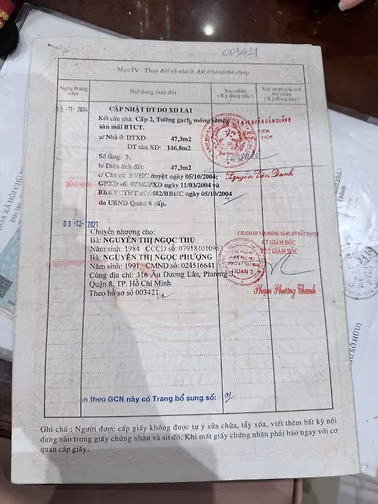 003421
Mục IV - Thay đổi về nhà ở, đất ở
Ngày tháng năm
Nội dung thay đổi
Xác nhận
( Ký đóng dấu )
Xác nhận
( Ký đóng dấu )
05-11-2004
CẬP NHẬT DT DO XD LẠI
Kết cấu nhà: Cấp 2, Tường gạch,
sàn mái BTCT.
a/ Nhà ở: DTXD 47,3m2
DT sàn XD: 146,8m2
Số tầng: 3,
b/ Diện tích đất: 47,3m2
c/ Căn cứ: BVHC duyệt ngày 05/10/2004;
ngày 11/03/2004 và
ngày 05/10/2004
do UBND Quận 8 cấp.
Nguyễn Văn Danh
03-12-2021
Chuyển nhượng cho:
Bà: NGUYỄN THỊ NGỌC THU
Năm sinh: 1984 CCCD số:
Bà: NGUYỄN THỊ NGỌC PHƯỢNG
Năm sinh: 1991 CMND số: 024516641
Cùng địa chỉ: 316 Âu Dương Lân, Phường
Quận 8, TP. Hồ Chí Minh
Theo hồ sơ số 003421
KT.GIÁM ĐỐC
PHÓ GIÁM ĐỐC
Phạm Phương Thanh
kèm theo GCN này có Trang bổ sung số: 01
Ghi chú : Người được cấp giấy không được tự ý sửa chữa, tẩy xóa, viết thêm bất kỳ nội
dung nào trong giấy chứng nhận và sơ đồ. Khi mất giấy chứng nhận phải báo ngay với cơ
quan cấp giấy.